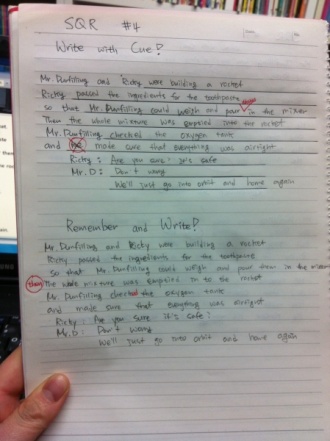 SQR #4
Write with Cue!
Mr. Dunfilling and Ricky were building a rocket
Ricky passed the ingredients for the toothpaste
so that Mr. Dunfilling could weigh and pour them in the mixer
Then the whole mixture was emptied into the rocket
Mr. Dunfilling checked the oxygen
and he made sure that everything was airright
Ricky : Are you sure? It's safe
Mr. D : Don't worry
We'll just go into orbit and home again
Remember and Write!
Mr. Dunfilling and Ricky were building a rocket
Ricky passed the ingredients for the toothpaste
so that Mr. Dunfilling could weigh and pour them in the mixer
then The whole mixture was emptied in to the rocket
Mr. Dunfilling checked the oxygen
and made sure that everything was airright
Ricky : Are you sure. It's safe?
Mr. D : Don't worry
We'll just go into orbit and home again